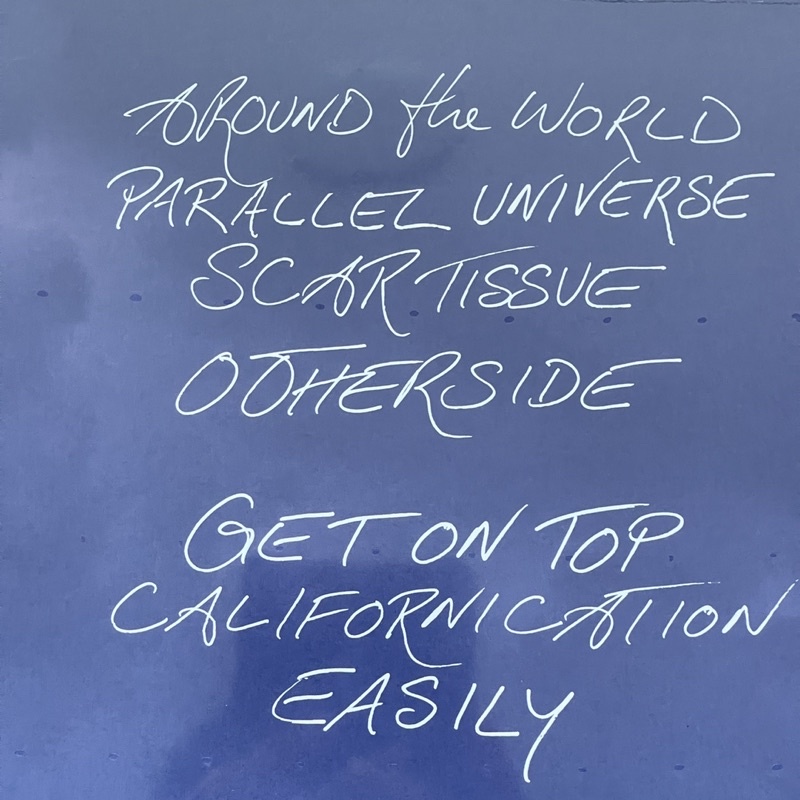 AROUND the WORLD
PARALLEL UNIVERSE
SCAR TISSUE
OTHERSIDE
GET ON TOP
CALIFORNICATION
EASILY